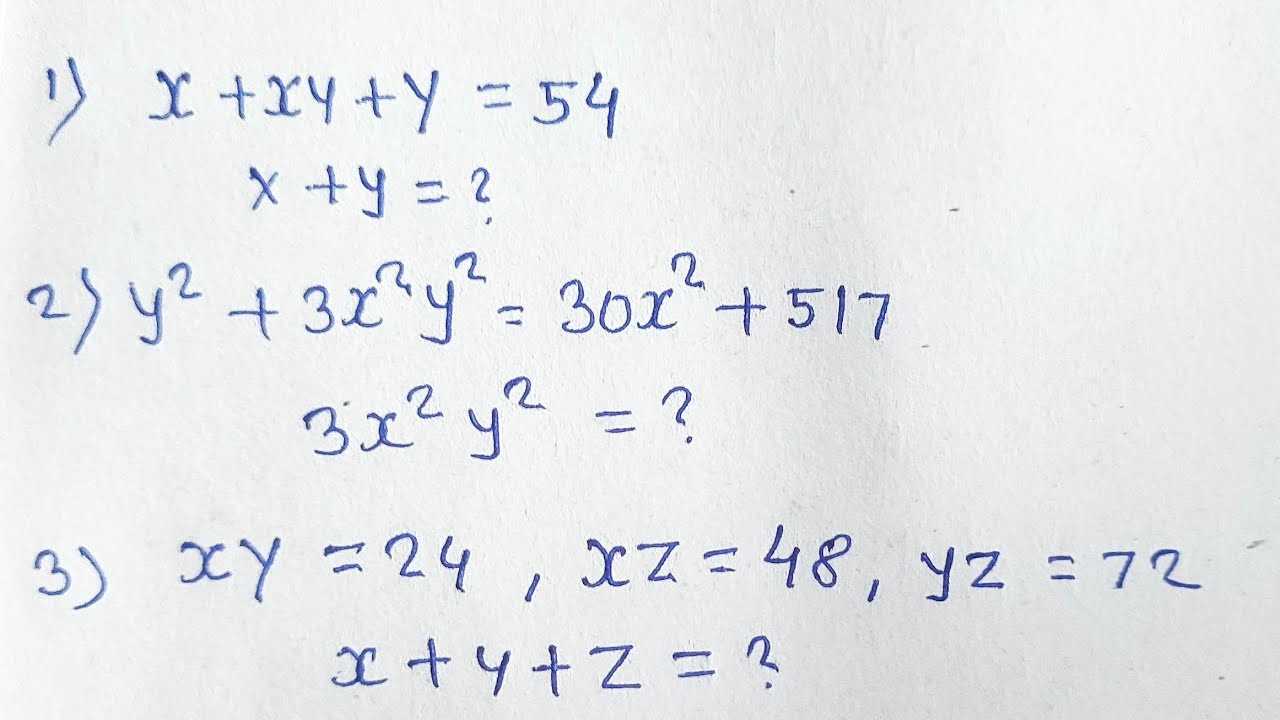 1) x + xy + y = 54
x + y = ?
2) y² + 3x²y² = 30x² + 517
3x² y² = ?
3) xy = 24 , xz = 48, yz = 72
x + y + z = ?